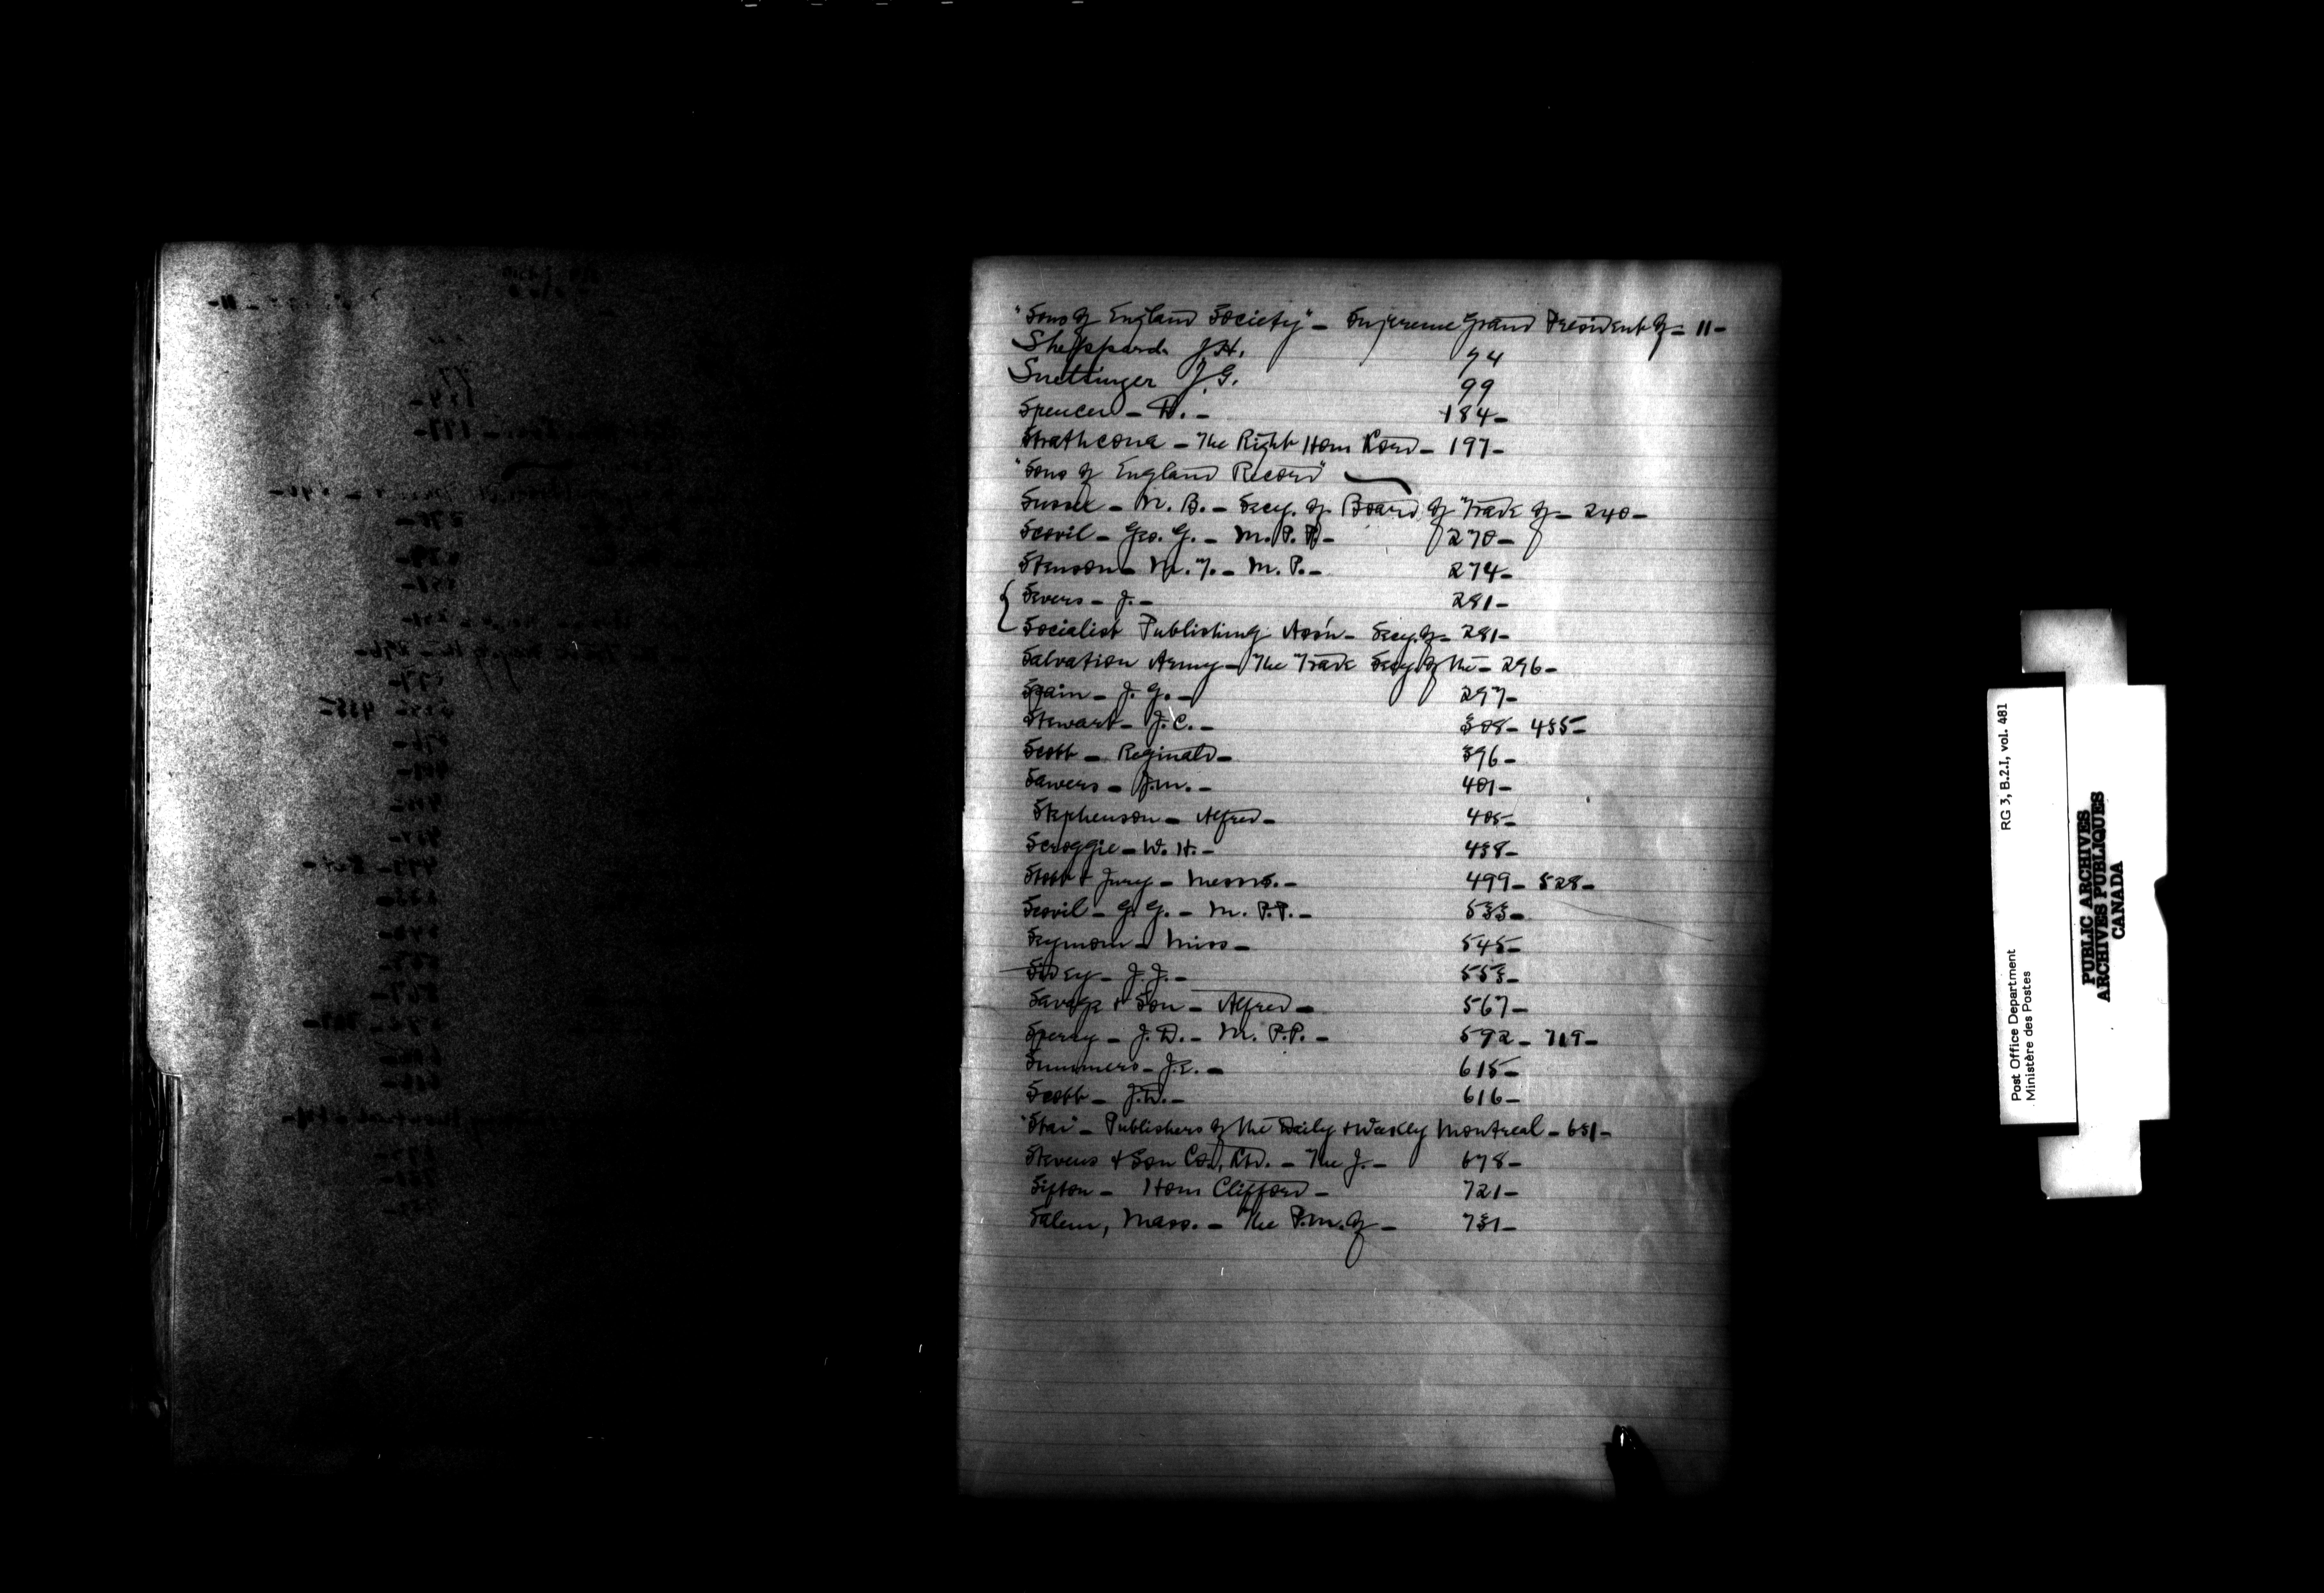 "Sons of England Society" - Supreme Grand President of - 11 -
Sheppard. J.H. 74
Snettinger J.G. 99
Spencer - D. - 184 -
Strathcona - The Right Hon Lord - 197 -
"Sons of England Record"
Sussex - N. B. - Secy. of Board of Trade of - 240 -
Scovil - Geo. G. - M.P.P. - 270 -
Stenson - M. T. - M.P. - 274 -
Severs - J. - 281 -
Socialist Publishing Ass'n - Secy. of - 281 -
Salvation Army - The Trade Secy. of the - 296 -
Spain - J. G. - 297 -
Stewart - J.C. - 308 - 435 -
Scott - Reginald - 396 -
Sawers - J.M. - 401 -
Stephenson - Alfred - 405 -
Scroggie - W. H. - 438 -
Stott & Jury - Messrs. - 499 - 528 -
Scovil - G. G. - M.P.P. - 533 -
Seymour - Miss - 545 -
Sidey - J. J. - 553 -
Savage & Son - Alfred - 567 -
Sperry - J. D. - M.P.P. - 592 - 719 -
Summers - J.E. - 615 -
Scott - J.D. - 616 -
"Star" - Publishers of the Daily & Weekly Montreal - 651 -
Stevens & Son Co., Ltd. - The J. - 678 -
Sifton - Hon Clifford - 721 -
Salem, Mass. - The P.M. of - 731 -
RG 3, B.2.I, vol. 481
Post Office Department
Ministère des Postes
PUBLIC ARCHIVES
ARCHIVES PUBLIQUES
CANADA